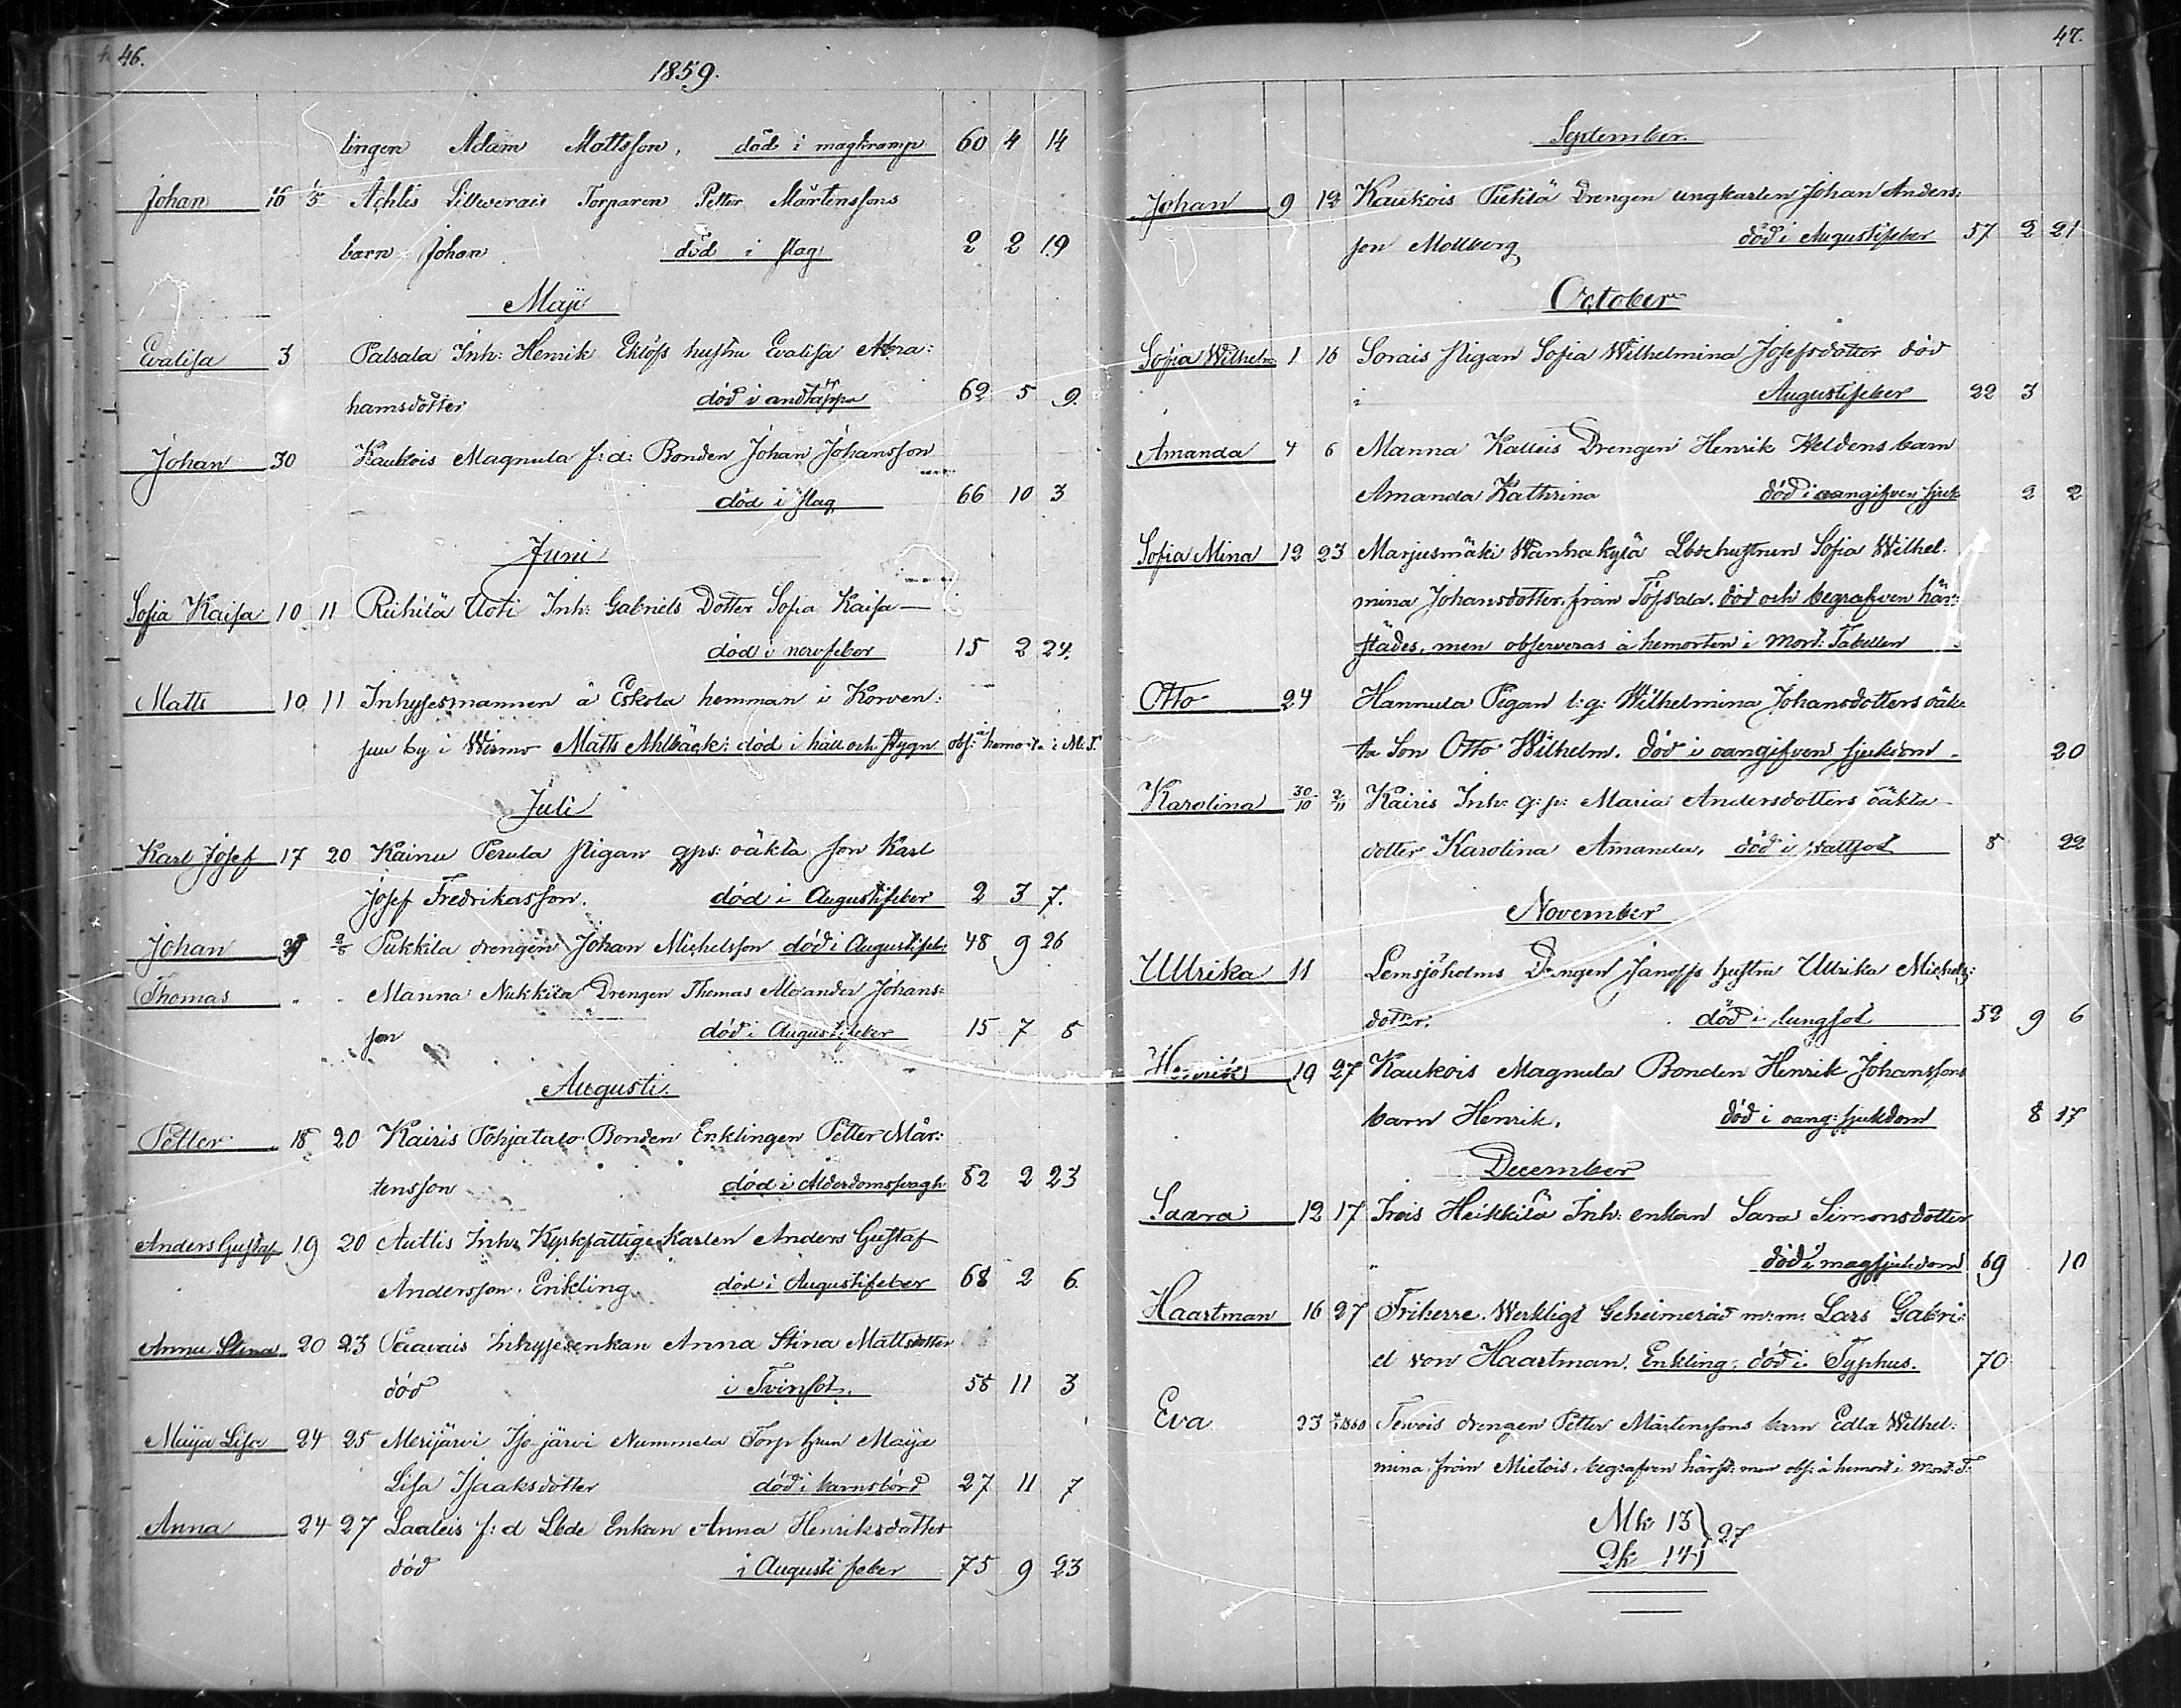 46.
1859.
lingen Adam Mattsson, död i magkramp 60 4 14
Johan 16 1/5 Ahlis Lillwerais Torparen Petter Mårtenssons
barn Johan död i slag 2 2 19
Maji
Evalisa 3 Palsala Inh: Henrik Eklöfs hustru Evalisa Abra:
hamsdotter död i andtäppa 62 5 9.
Johan 30 Kaukois Magnula f:d: Bonden Johan Johansson
död i slag 66 10 3
Juni
Sofia Kaisa 10 11 Riihilä Uoti Inh: Gabriels Dotter Sofia Kaisa
död i nervfeber 15 2 24.
Matts 10 11 Inhysesmannen å Eskola hemman i Korven:
suu by i Wirmo Matts Ahlbäck: död i håll och stygn obs: å hemort. i M:T.
Juli
Karl Josef 17 20 Kainu Perula pigan gps: oäkta son Karl
Josef Fredriksson. död i Augustifeber 2 3 7.
Johan 29 2/8 Pukkila drengen Johan Michelsson död i Augustifeb: 48 9 26
Thomas " " Manna Nukkila Drengen Thomas Alexander Johans=
son död i Augustifeber 15 7 5
Augusti.
Petter 18 20 Kairis Pohjatalo Bonden Enklingen Petter Mår:
tensson död i Ålderdomssvagh 82 2 23
Anders Gustaf 19 20 Autlis Inh: Kyrkfattige Karlen Anders Gustaf
Andersson. Enkling död i Augustifeber 68 2 6
Anna Stina 20 23 Saavais Inhysesenkan Anna Stina Mattsdotter
död i Tvinsot. 58 11 3
Maija Lisa 24 25 Merijärvi Isojärvi Nummela Torp hrun Maija
Lisa Isaaksdotter död i barnsbörd 27 11 7
Anna 24 27 Laaleis f:d Lbde Enkan Anna Henriksdotter
död i Augusti feber 75 9 23
47.
September.
Johan 9 12 Kaukois Pietilä Drengen ungkarlen Johan Anders:
son Mollberg död i Augustifeber 57 2 21
October
Sofia Wilhelm: 1 16 Sorais Pigan Sofia Wilhelmina Josefsdotter död
i Augustifeber 22 3
Amanda 4 6 Manna Kalleis Drengen Henrik Weldens barn
Amanda Kathrina död i oangifven sjuk 2 2
Sofia Mina 12 23 Marjusmäki Wanhakylä Lbde hustrun Sofia Wilhel.
mina Johansdotter från Töfsala. död och begrafven här:
städes, men observeras å hemorten i Mort: Tabellen
Otto 24 Hannula Pigan l:g: Wilhelmina Johansdotters oäk:
ta Son Otto Wilhelm. död i oangifven sjukdom 20
Karolina 30/10 2/11 Kairis Inh: q:p: Maria Andersdotters oäkta
dotter Karolina Amanda, död i vattsot 8 22
November
Ullrika 11 Lemsjöholms Drengen Janosfs hustru Ullrika Michels:
dotter. död i lungsot 52 9 6
Henrik 19 27 Kaukois Magnula Bonden Henrik Johanssons
barn Henrik. död i oang: sjukdom 8 17
December
Saara 12 17 Irois Heikkilä Inh: enkan Sara Simonsdotter
" död i magsjukdom 69 10
Haartman 16 27 Friherre. Werkligt Geheimeråd m:m: Lars Gabri:
el von Haartman. Enkling: död i Typhus. 70
Eva 23 1860 Tervois drengen Petter Mårtenssons barn Edla Wilhel:
mina från Mietois. begrafven härst: men obs: å hemort i Mort:T:
Mk 13 } 27
Qk 14